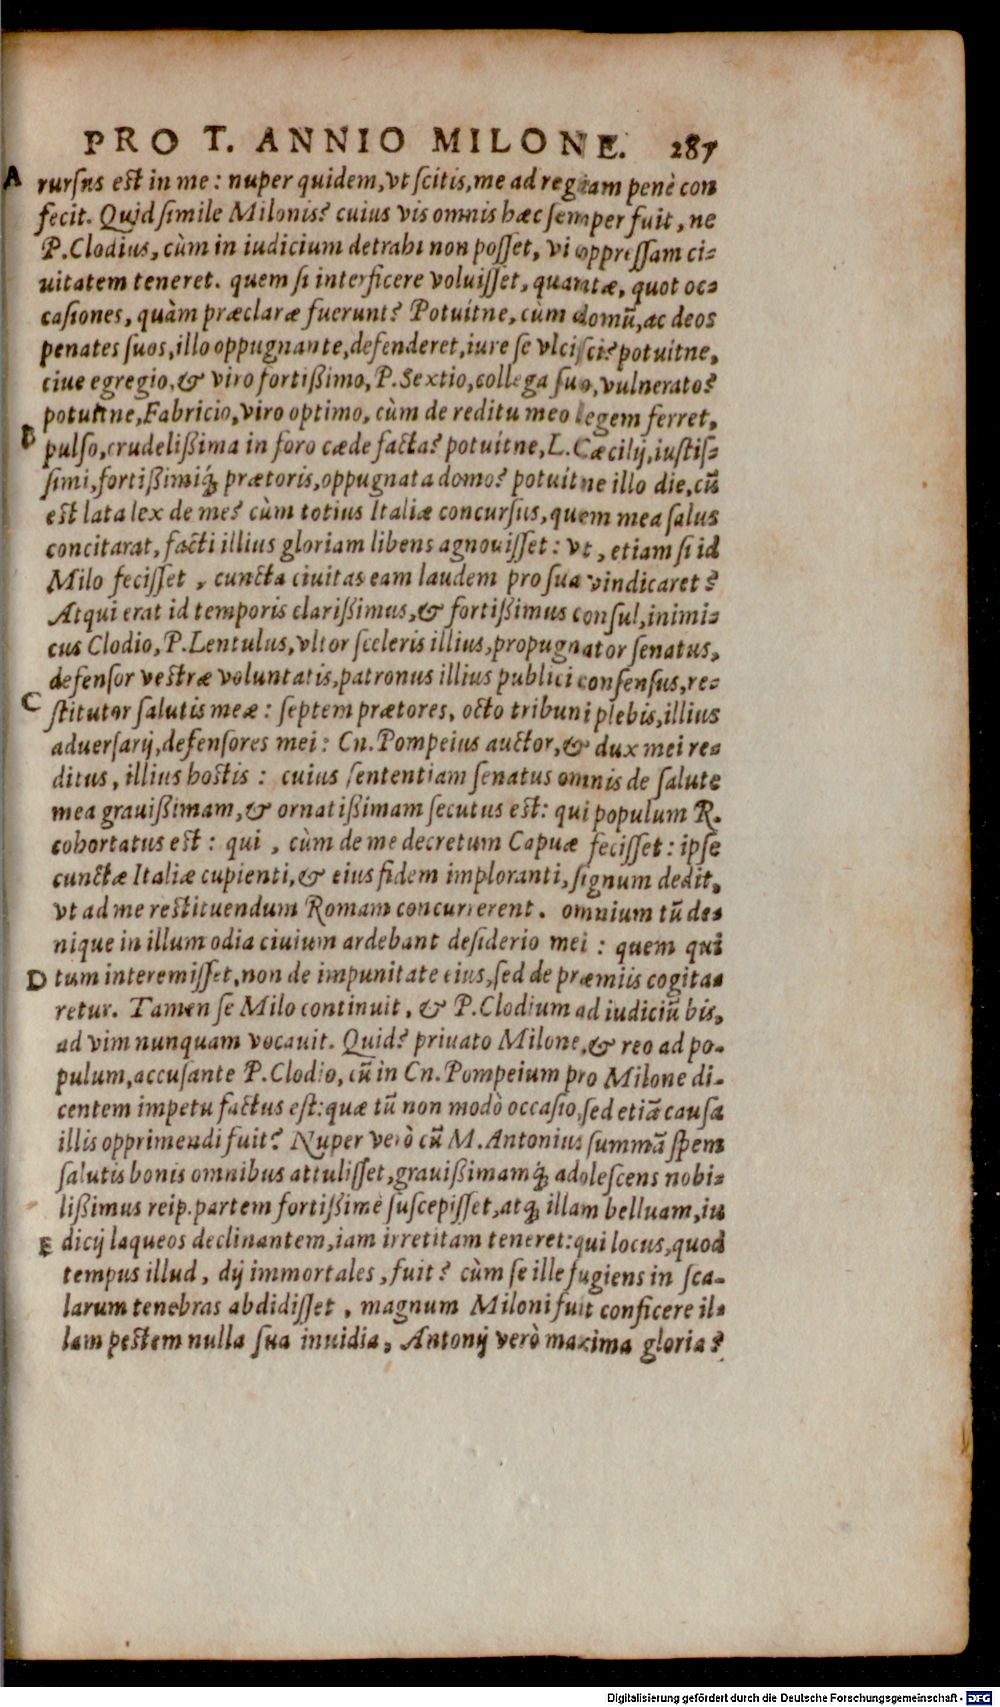 PRO T. ANNIO MILONE. 287
A rursns est in me: nuper quidem, vt scitis, me ad regiam penè con
fecit. Quid simile Milonis? cuius vis omnis hæc semper fuit, ne
P. Clodius, cùm in iudicium detrahi non posset, vi oppressam ci-
uitatem teneret. quem si interficere voluisset, quantæ, quot oc-
casiones, quàm præclaræ fuerunt? Potuitne, cùm domũ, ac deos
penates suos, illo oppugnante, defenderet, iure se vlcisci? potuitne,
ciue egregio, & viro fortißimo, P. Sextio, collega suo, vulnerato?
potuitne, Fabricio, viro optimo, cùm de reditu meo legem ferret,
B pulso, crudelißima in foro cæde facta? potuitne, L. Cæcilij, iustis-
simi, fortißimiq́; prætoris, oppugnata domo? potuitne illo die, cũ
est lata lex de me? cùm totius Italiæ concursus, quem mea salus
concitarat, facti illius gloriam libens agnouisset: vt, etiam si id
Milo fecisset, cuncta ciuitas eam laudem pro sua vindicaret?
Atqui erat id temporis clarißimus, & fortißimus consul, inimi-
cus Clodio, P. Lentulus, vltor sceleris illius, propugnator senatus,
defensor vestræ voluntatis, patronus illius publici consensus, re-
C stitutor salutis meæ: septem prætores, octo tribuni plebis, illius
aduersarij, defensores mei: Cn. Pompeius auctor, & dux mei re-
ditus, illius hostis: cuius sententiam senatus omnis de salute
mea grauißimam, & ornatißimam secutus est: qui populum R.
cohortatus est: qui, cùm de me decretum Capuæ fecisset: ipse
cunctæ Italiæ cupienti, & eius fidem imploranti, signum dedit,
vt ad me restituendum Romam concurrerent. omnium tũ de-
nique in illum odia ciuium ardebant desiderio mei: quem qui
D tum interemisset, non de impunitate eius, sed de præmiis cogita-
retur. Tamen se Milo continuit, & P. Clodium ad iudiciũ bis,
ad vim nunquam vocauit. Quid? priuato Milone, & reo ad po-
pulum, accusante P. Clodio, cũ in Cn. Pompeium pro Milone di-
centem impetu factus est: quæ tũ non modò occasio, sed etiã causa
illis opprimendi fuit? Nuper verò cũ M. Antonius summã spem
salutis bonis omnibus attulisset, grauißimamq́; adolescens nobi-
lißimus reip. partem fortißimè suscepisset, atq; illam belluam, iu
E dicij laqueos declinantem, iam irretitam teneret: qui locus, quod
tempus illud, dij immortales, fuit? cùm se ille fugiens in sca-
larum tenebras abdidisset, magnum Miloni fuit conficere il-
lam pestem nulla sua inuidia, Antonij verò maxima gloria?
Digitalisierung gefördert durch die Deutsche Forschungsgemeinschaft - DFG